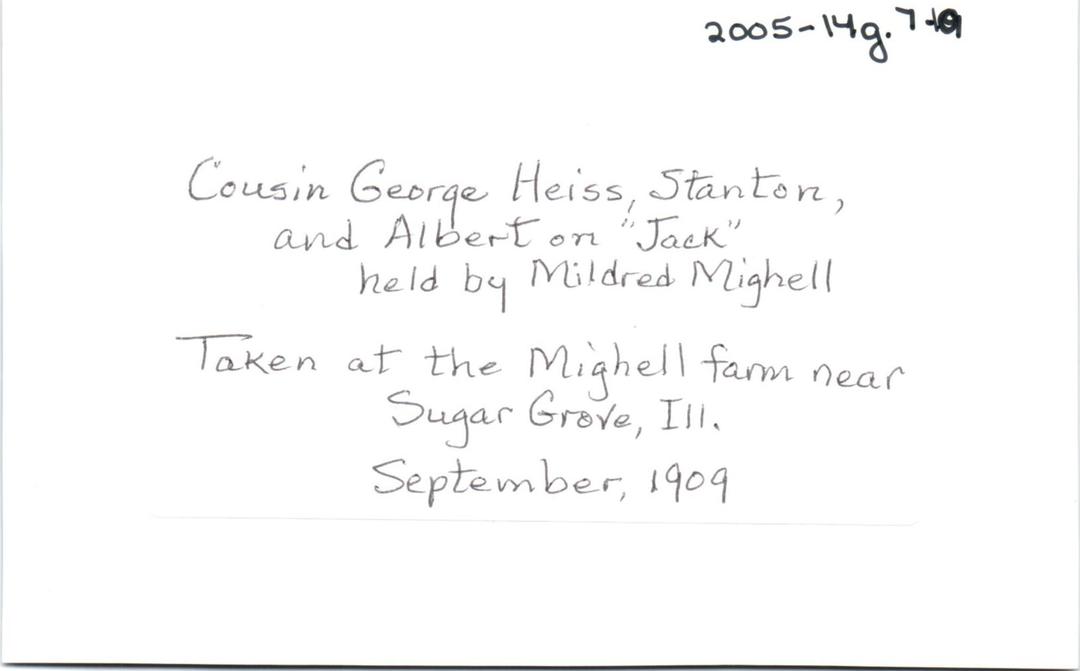 2005-14g.7
Cousin George Heiss, Stanton,
and Albert on "Jack"
held by Mildred Mighell
Taken at the Mighell farm near
Sugar Grove, Ill.
September, 1909